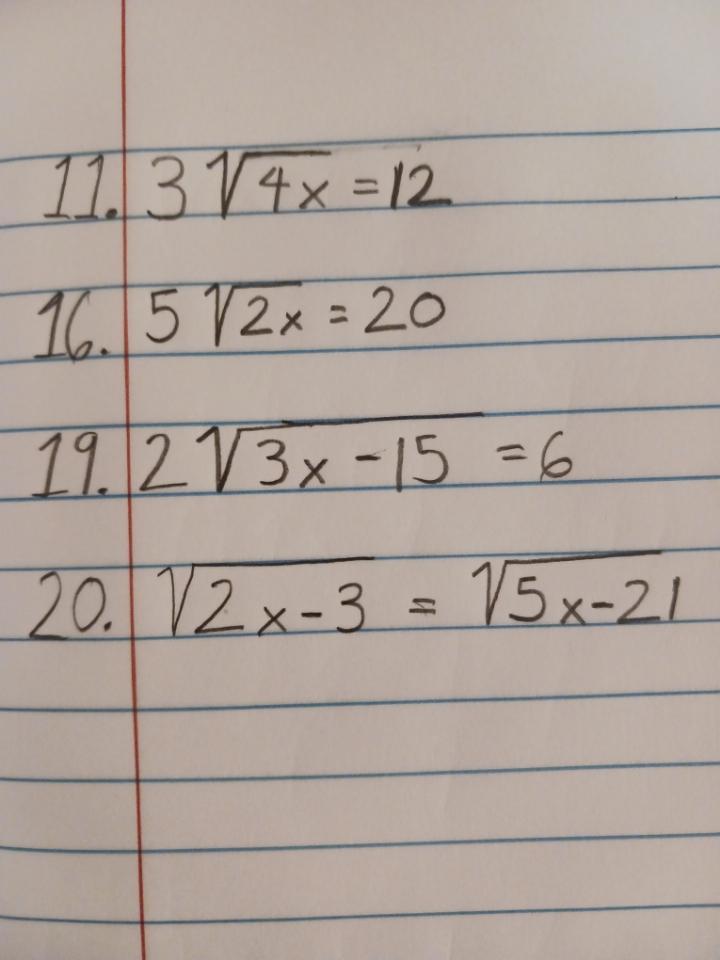 11. 3√4x = 12
16. 5√2x = 20
19. 2√3x - 15 = 6
20. √2x - 3 = √5x - 21